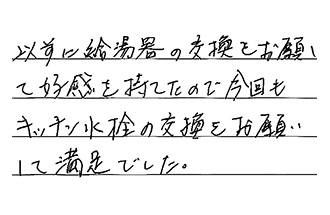 以前に給湯器の交換をお願い
て好感を持てたので今回も
キッチン水栓の交換をお願い
して満足でした。